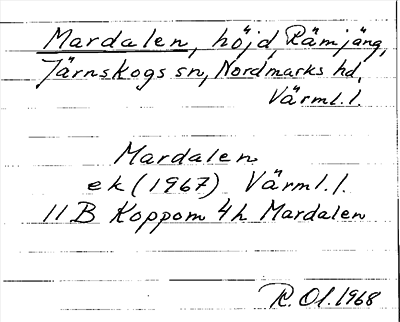 Mardalen, höjd, Rämjäng,
Järnskogs sn, Nordmarks hd,
Värml. l.
Mardalen
ek (1967) Värml. l.
11 B Koppom 4h Mardalen
R. Ol. 1968